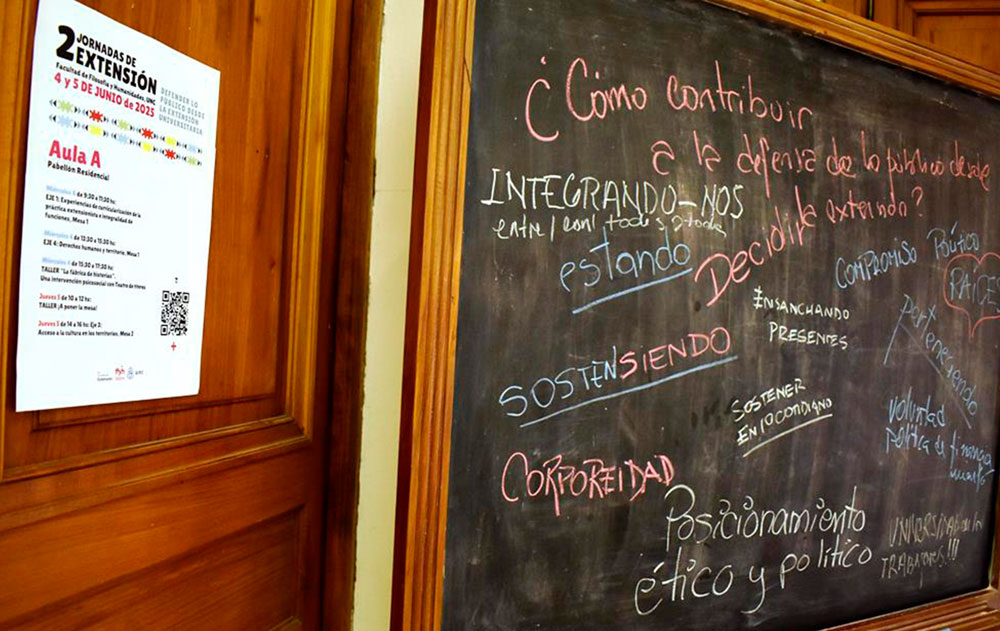 2 JORNADAS DE
EXTENSIÓN
Facultad de Filosofía y Humanidades, UNC
4 y 5 DE JUNIO de 2025
DEFENDER LO
PÚBLICO DESDE
LA EXTENSIÓN
UNIVERSITARIA
Aula A
Pabellón Residencial
Miércoles 4 de 9:30 a 11:30 hs:
EJE 1: Experiencias de curricularización de la
práctica extensionista e integralidad de
funciones. Mesa 1
Miércoles 4 de 13:30 a 15:30 hs:
EJE 4: Derechos humanos y territorio. Mesa 1
Miércoles 4 de 15:30 a 17:30 hs:
TALLER "La fábrica de historias".
Una intervención psicosocial con Teatro de títeres
Jueves 5 de 10 a 12 hs:
TALLER ¡A poner la mesa!
Jueves 5 de 14 a 16 hs: Eje 3:
Acceso a la cultura en los territorios. Mesa 2
¿Cómo contribuir
a la defensa de lo público desde
la extensión?
INTEGRANDO-NOS
entre/con/todas y todos
estando
Decidir
COMPROMISO Político
RAICES
ENSANCHANDO
PRESENTES
SOSTENSIENDO
SOSTENER
EN LO CONDIGNO
Voluntad
política de financia
miento
CORPOREIDAD
Posicionamiento
ético y político
UNIVERSIDAD
TRABAJORES!!!